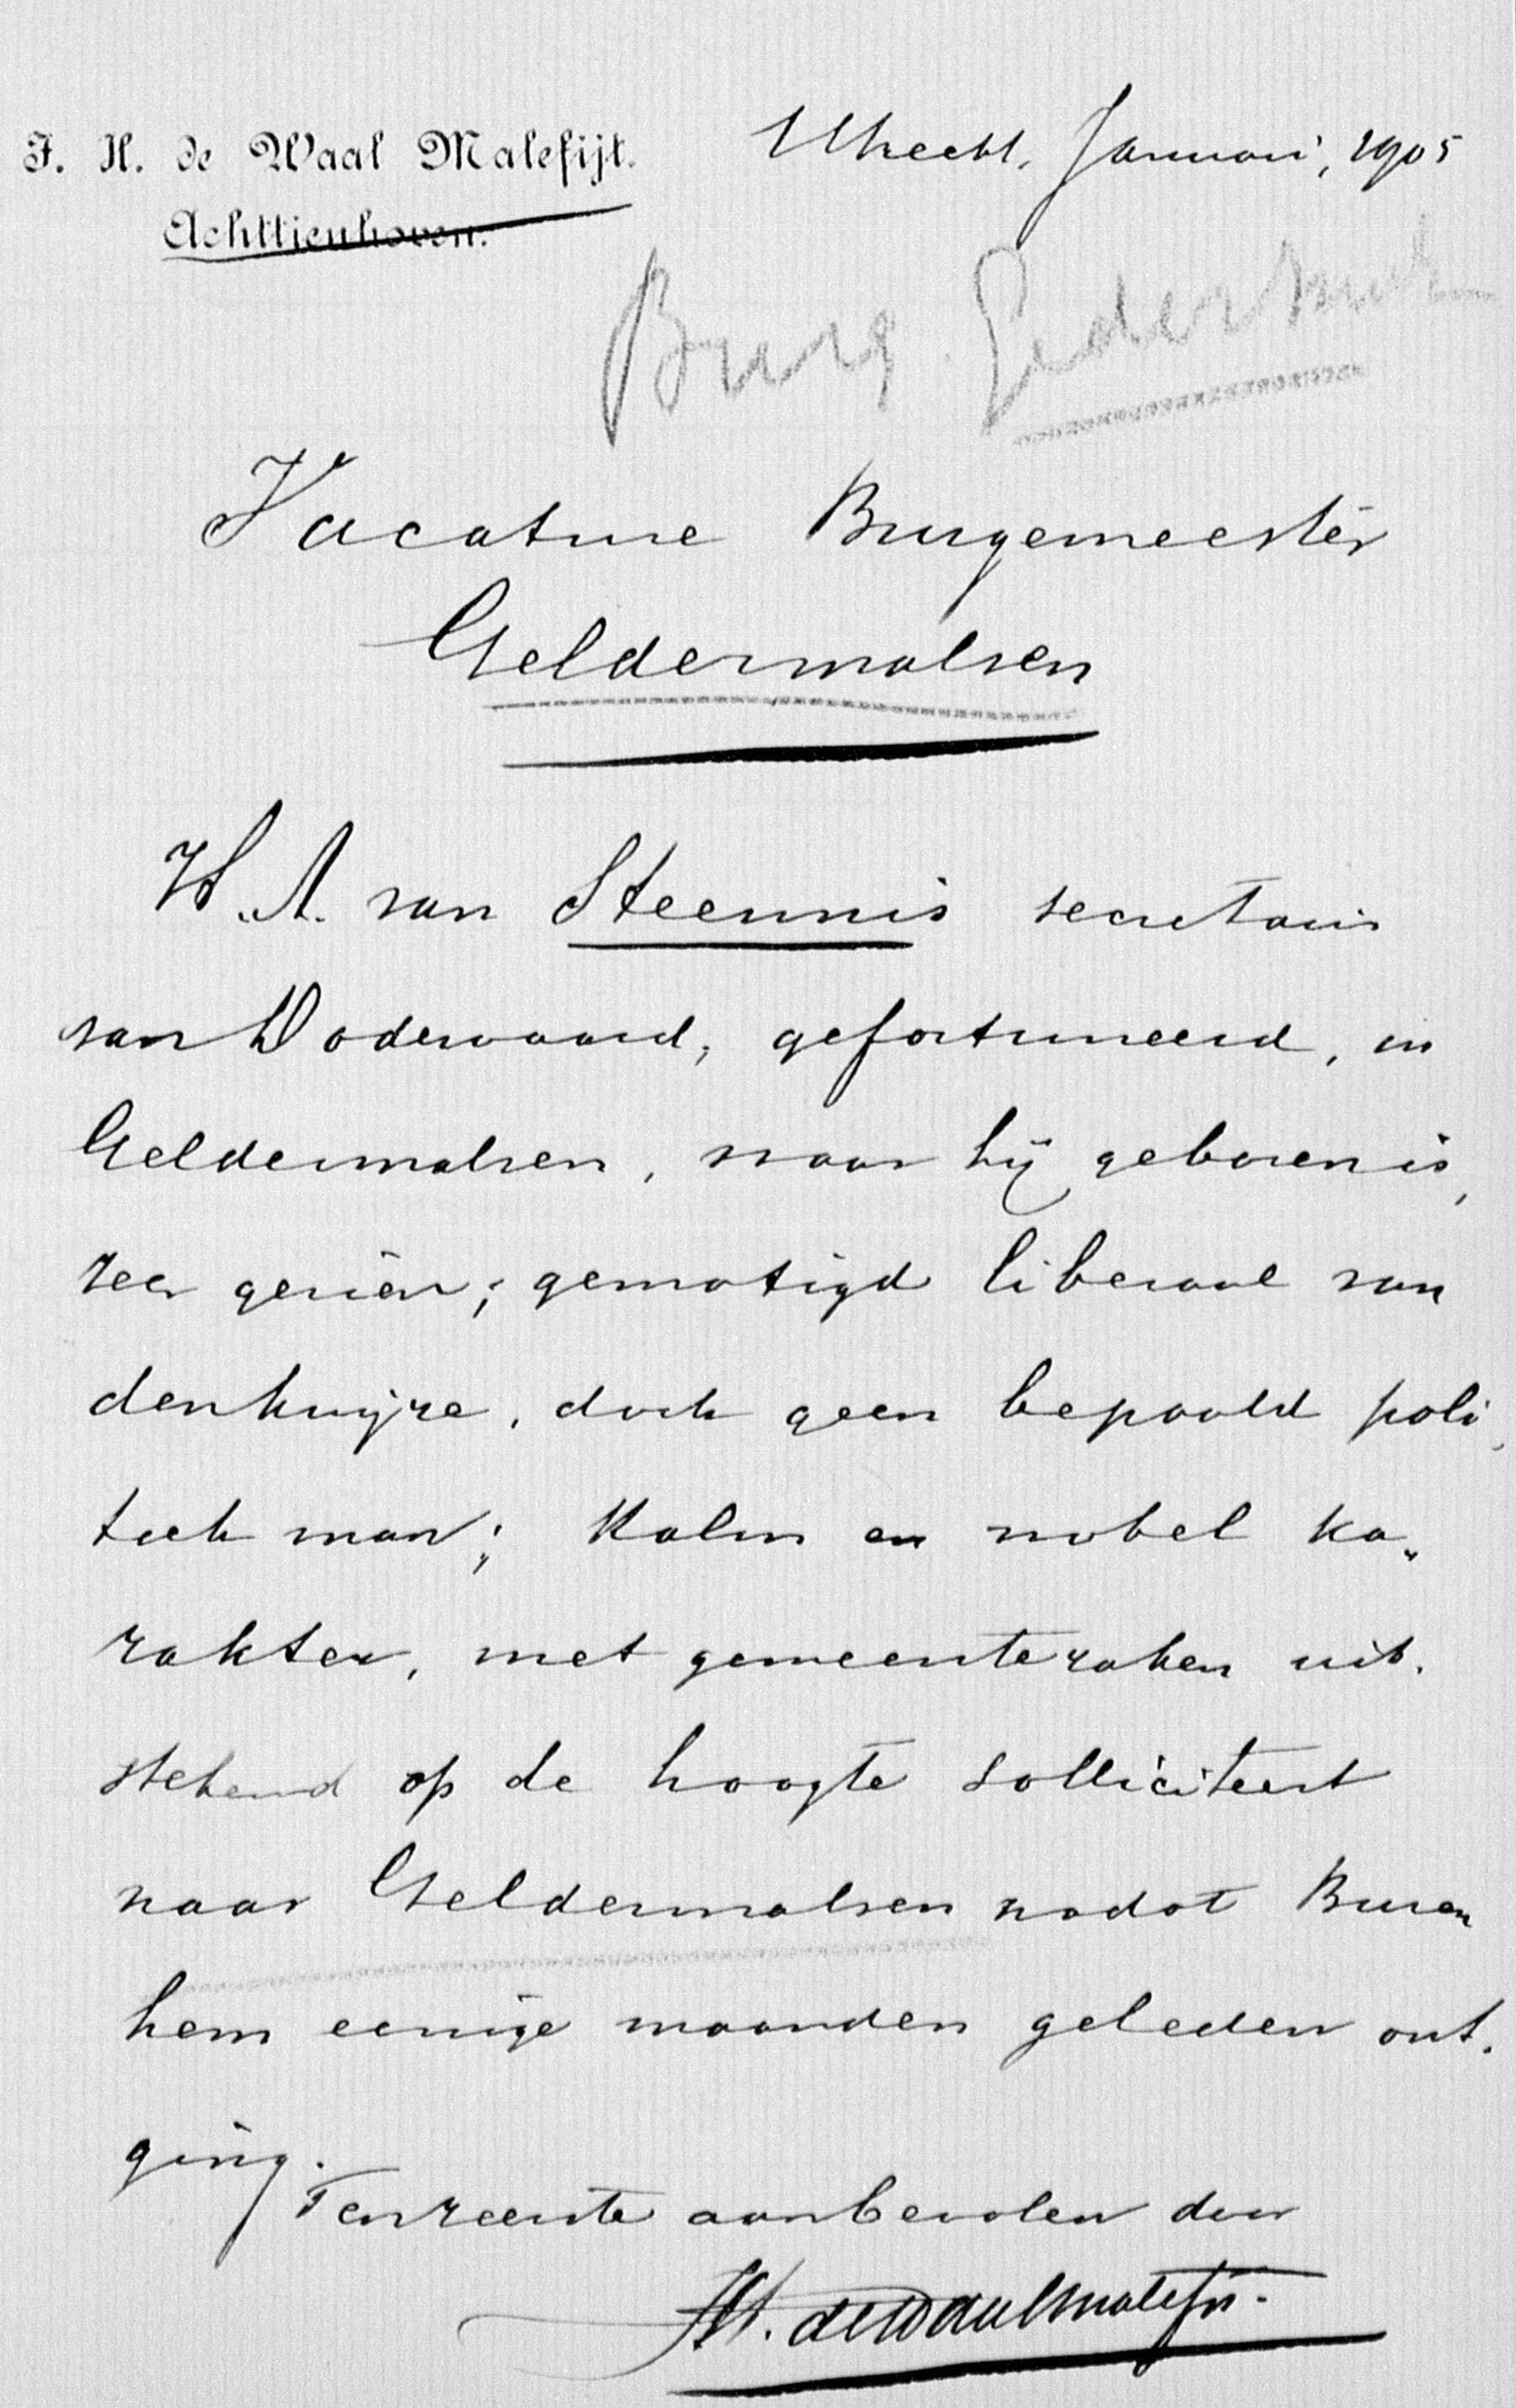 J. H. de Waal Malefijt.
Utrecht, Januari, 1905
Achttienhoven.
Burg. Geldermals
Vacature Burgemeester
Geldermalsen
W. A. van Steennis secretaris
van Dodewaard, gefortuneerd, in
Geldermalsen, waar hij geboren is,
zeer gezien; gematigd liberaal van
denkwijze, doch geen bepaald poli-
tiek man; kalm en nobel ka-
rakter, met gemeentezaken uit-
stekend op de hoogte solliciteert
naar Geldermalsen nadat Buren
hem eenige maanden geleden ont-
ging.
Tenzeerste aanbevolen door
JH. de Waal Malefijt.